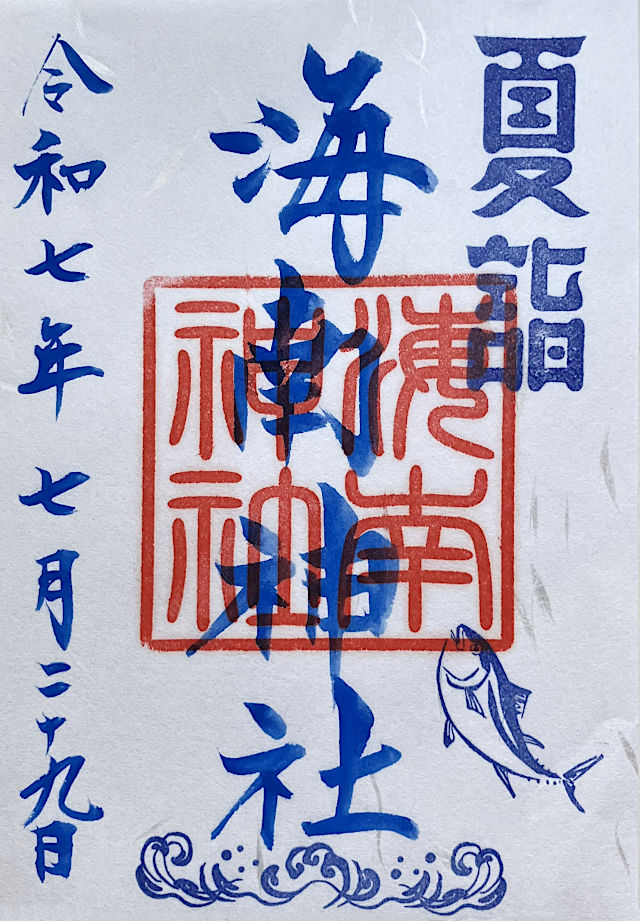 夏詣
海南神社
海南
神社
令和七年 七月二十九日